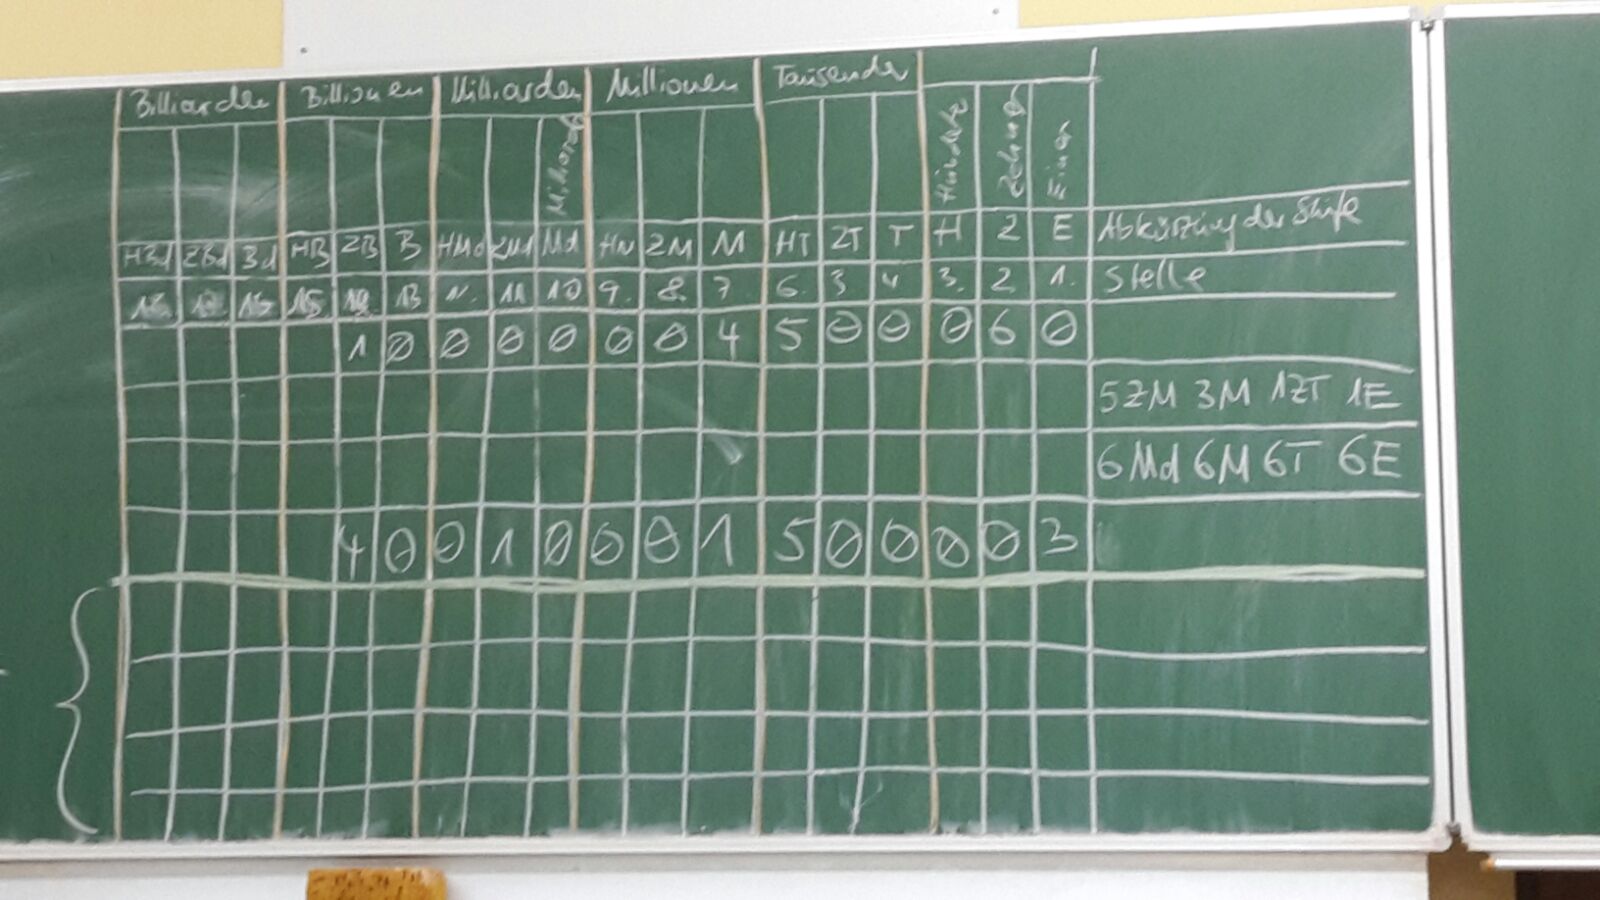 Billiarden Billionen Milliarden Millionen Tausender
Milliarde Hunderter Zehner Einer
HBd ZBd Bd HB ZB B HMd ZMd Md HM ZM M HT ZT T H Z E Abkürzung der Stufe
15. 13 11 10 9. 8. 7 6. 4 3. 2. 1. Stelle
1 0 0 0 0 0 0 4 5 0 0 0 6 0
5ZM 3M 1ZT 1E
6Md 6M 6T 6E
4 0 0 1 0 0 0 1 5 0 0 0 0 3